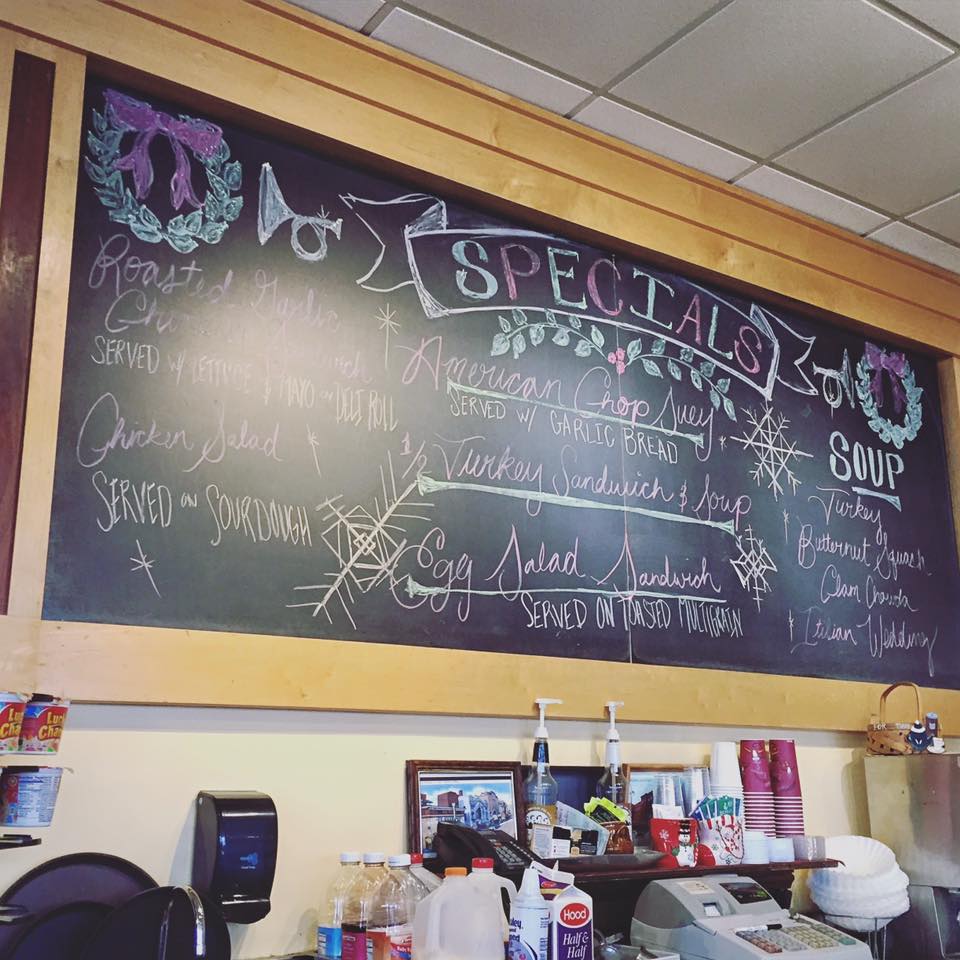 SPECIALS
Roasted Garlic
SERVED w/ LETTUCE & MAYO on DELI ROLL
Chicken Salad
SERVED on SOURDOUGH
American Chop Suey
SERVED w/ GARLIC BREAD
1/2 Turkey Sandwich & Soup
Egg Salad Sandwich
SERVED ON TOASTED MULTIGRAIN
SOUP
Turkey
Butternut Squash
Clam Chowda
Italian Wedding
Hood
Half &
Half